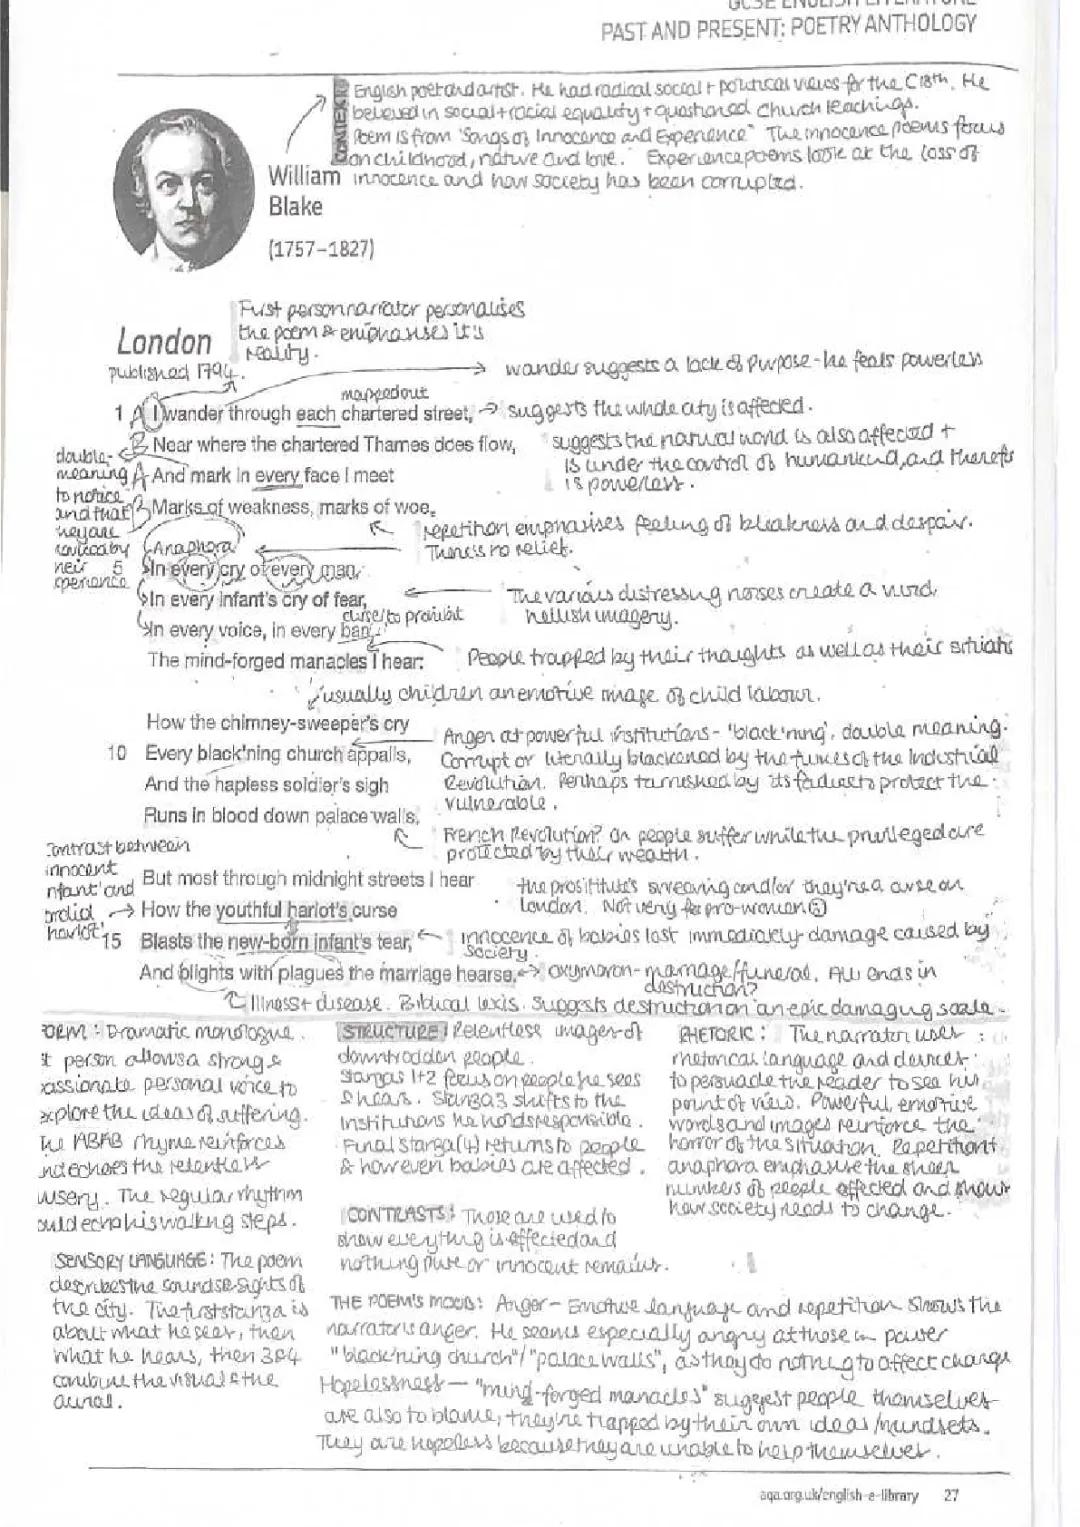 GCSE ENGLISH LITERATURE
PAST AND PRESENT: POETRY ANTHOLOGY
CONTEXT
English poet and artist. He had radical social + political views for the C18th. He
believed in social + racial equality + questioned church teachings.
Poem is from 'Songs of Innocence and Experience" The innocence poems focus
on childhood, nature and love. Experience poems look at the loss of
innocence and how society has been corrupted.
William
Blake
(1757–1827)
First person narrator personalises
the poem & emphasises it's
reality.
London
published 1794.
wander suggests a lack of purpose - he feels powerless
mapped out
1 A I wander through each chartered street, → suggests the whole city is affected.
B Near where the chartered Thames does flow,
suggests the natural world is also affected +
is under the control of humankind, and therefore
is powerless.
A And mark in every face I meet
B Marks of weakness, marks of woe.
double-
meaning
to notice
and that
they are
by
their
experience
repetition emphasises feeling of bleakness and despair.
There's no relief.
Anaphora
5 In every cry of every man,
In every infant's cry of fear,
The various distressing noises create a vivid,
hellish imagery.
curse/to prohibit
In every voice, in every ban,
The mind-forged manacles I hear:
People trapped by their thoughts as well as their
usually children an emotive image of child labour.
How the chimney-sweeper's cry
10 Every black'ning church appalls,
And the hapless soldier's sigh
Runs in blood down palace walls,
Anger at powerful institutions - 'black'ning', double meaning:
Corrupt or literally blackened by the fumes of the Industrial
Revolution. Perhaps tarnished by its failure to protect the
vulnerable.
French Revolution? Or people suffer while the privileged are
protected by their wealth.
Contrast between
innocent
infant' and
harlot'
But most through midnight streets I hear
How the youthful harlot's curse
15 Blasts the new-born infant's tear,
And blights with plagues the marriage hearse.
the prostitute's swearing and/or they're a curse on
London. Not very pro-women
innocence of babies lost immediately damage caused by
society.
oxymoron - marriage/funeral. All ends in
destruction?
Illness + disease. Biblical lexis. Suggests destruction on an epic damaging scale.
FORM: Dramatic monologue.
1st person allows a strong &
passionate personal voice to
explore the ideas of suffering.
The ABAB rhyme reinforces
and echoes the relentless
misery. The regular rhythm
could echo his walking steps.
SENSORY LANGUAGE: The poem
describes the sounds & sights of
the city. The first stanza is
about what he sees, then
what he hears, then 3&4
combine the visual & the
aural.
STRUCTURE: Relentless images of
downtrodden people.
Stanzas 1+2 focus on people he sees
& hears. Stanza 3 shifts to the
institutions he holds responsible.
Final stanza (4) returns to people
& how even babies are affected.
CONTRASTS: These are used to
show everything is affected and
nothing pure or innocent remains.
RHETORIC: The narrator uses
rhetorical language and devices
to persuade the reader to see his
point of view. Powerful, emotive
words and images reinforce the
horror of the situation. Repetition +
anaphora emphasise the sheer
numbers of people affected and shows
how society needs to change.
THE POEM'S MOOD: Anger - Emotive language and repetition shows the
narrator's anger. He seems especially angry at those in power
"black'ning church"/"palace walls", as they do nothing to affect change
Hopelessness - "mind-forged manacles" suggest people themselves
are also to blame, they're trapped by their own ideas/mindsets.
They are hopeless because they are unable to help themselves.
aqa.org.uk/english-e-library 27